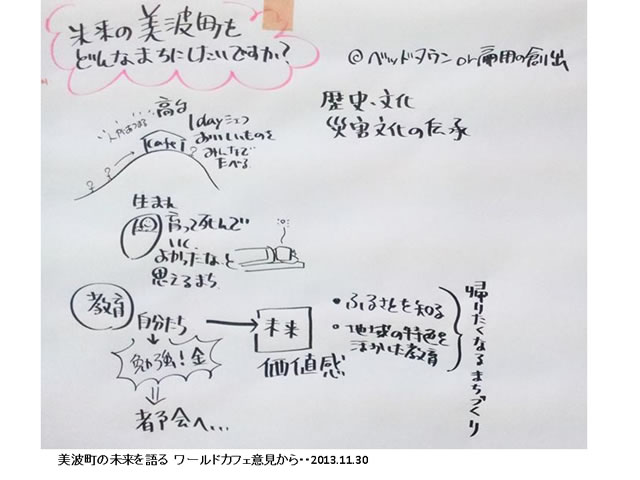 未来の美波町を
どんなまちにしたいですか?
◎ベッドタウン or 雇用の創出
歴史、文化
災害文化の伝承
高台
1dayシェフ
おいしいものを
みんなで
たべる
Cafe
生まれ
育って死んで
いく
よかったな、と
思えるまち
教育
自分たち
勉強!金
都会へ...
未来
価値感
・ふるさとを知る
・地域の特色を
活かした教育
帰りたくなるまちづくり
美波町の未来を語る ワールドカフェ意見から・・2013.11.30